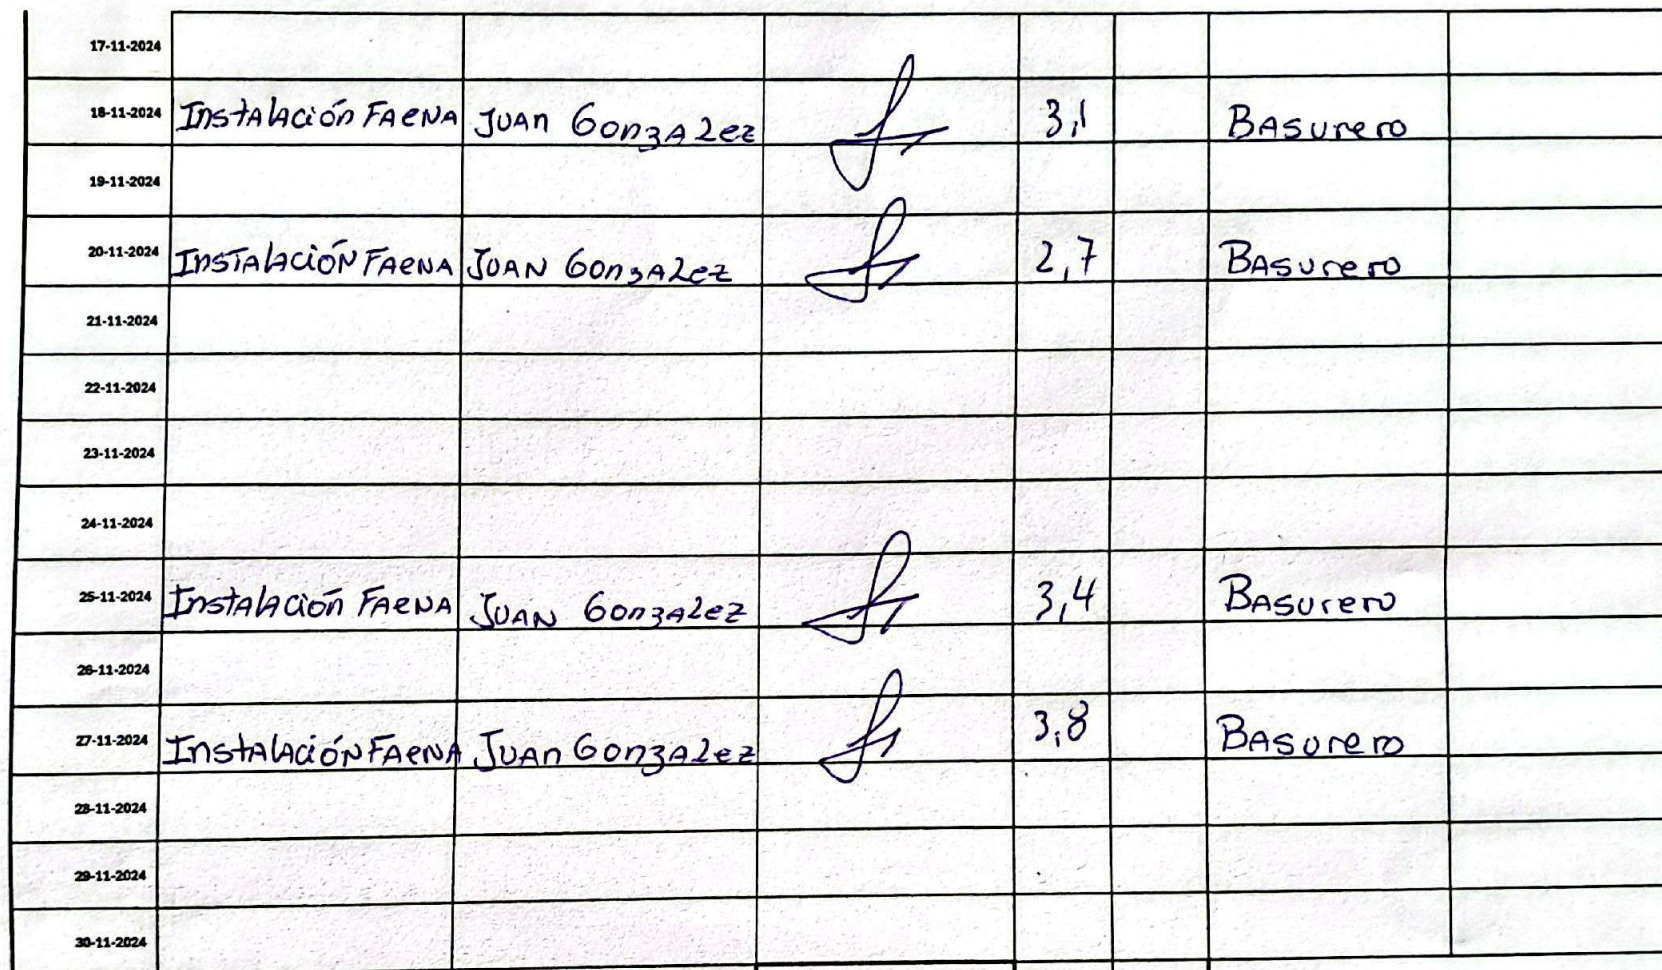 17-11-2024
18-11-2024 Instalación Faena Juan Gonzalez 3,1 Basurero
19-11-2024
20-11-2024 Instalación Faena Juan Gonzalez 2,7 Basurero
21-11-2024
22-11-2024
23-11-2024
24-11-2024
25-11-2024 Instalación Faena Juan Gonzalez 3,4 Basurero
26-11-2024
27-11-2024 Instalación Faena Juan Gonzalez 3,8 Basurero
28-11-2024
29-11-2024
30-11-2024